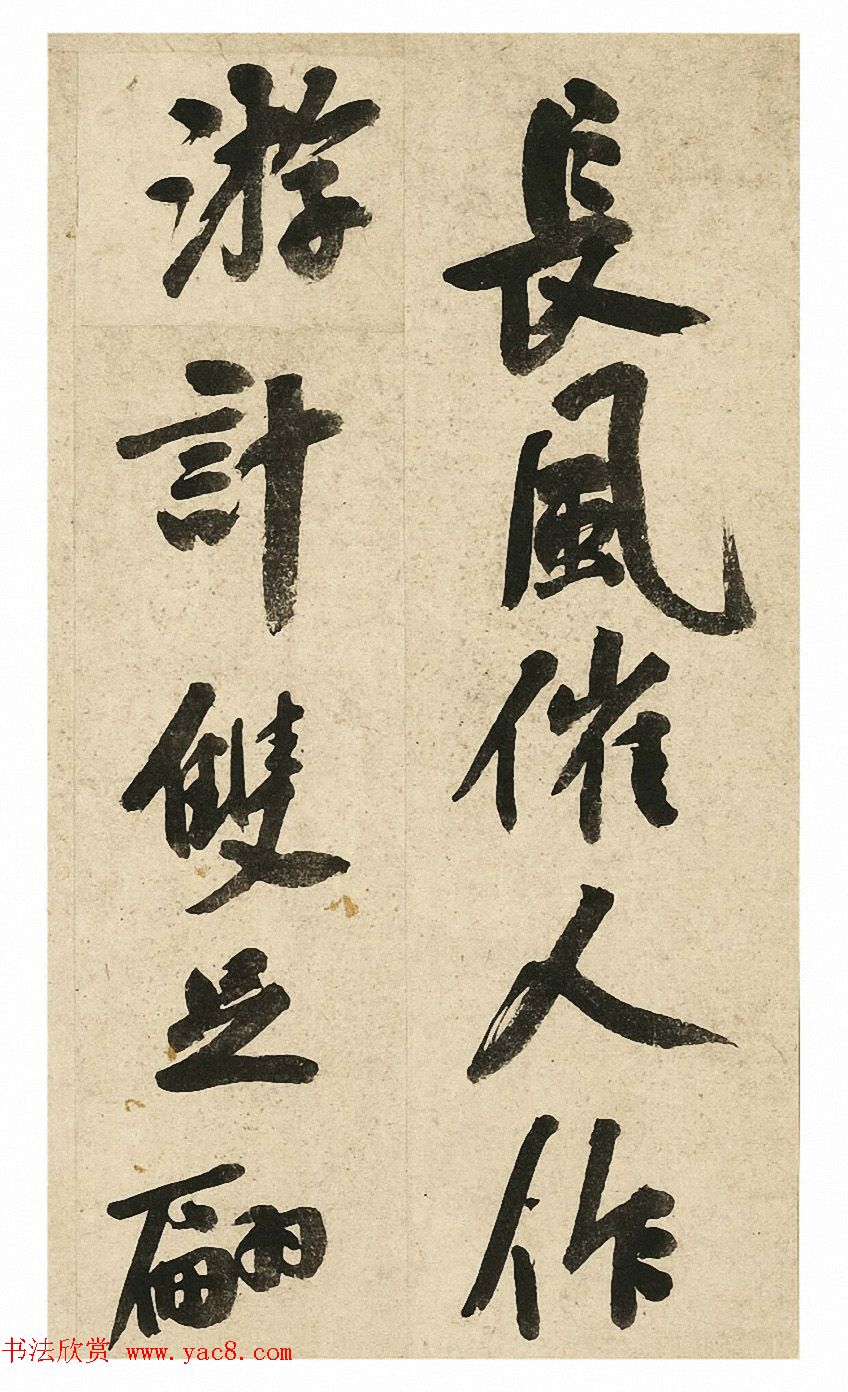 長風催人作
游計雙足翩
书法欣赏 www.yac8.com